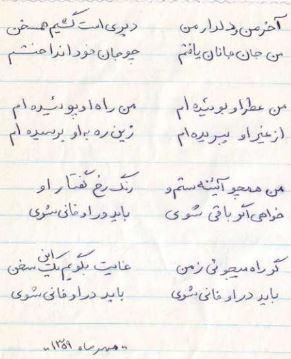 آخر من و دلدار من دیری است گشتیم همسخن
من جان جانان یافتم چو جان خود انداختم
من عطر او بوئیده ام من راه او پوئیده ام
از غیر او ببریده ام زین ره به او برسیده ام
من همچو آئینه ستم و رنگ رخ گفتار او
خواهی اگر باقی شوی باید در او فانی شوی
گر راه میجوئی ز من غایت بگویم یک این سخن
باید در او فانی شوی باید در او فانی شوی
"مهر ماه ۱۳۵۹"